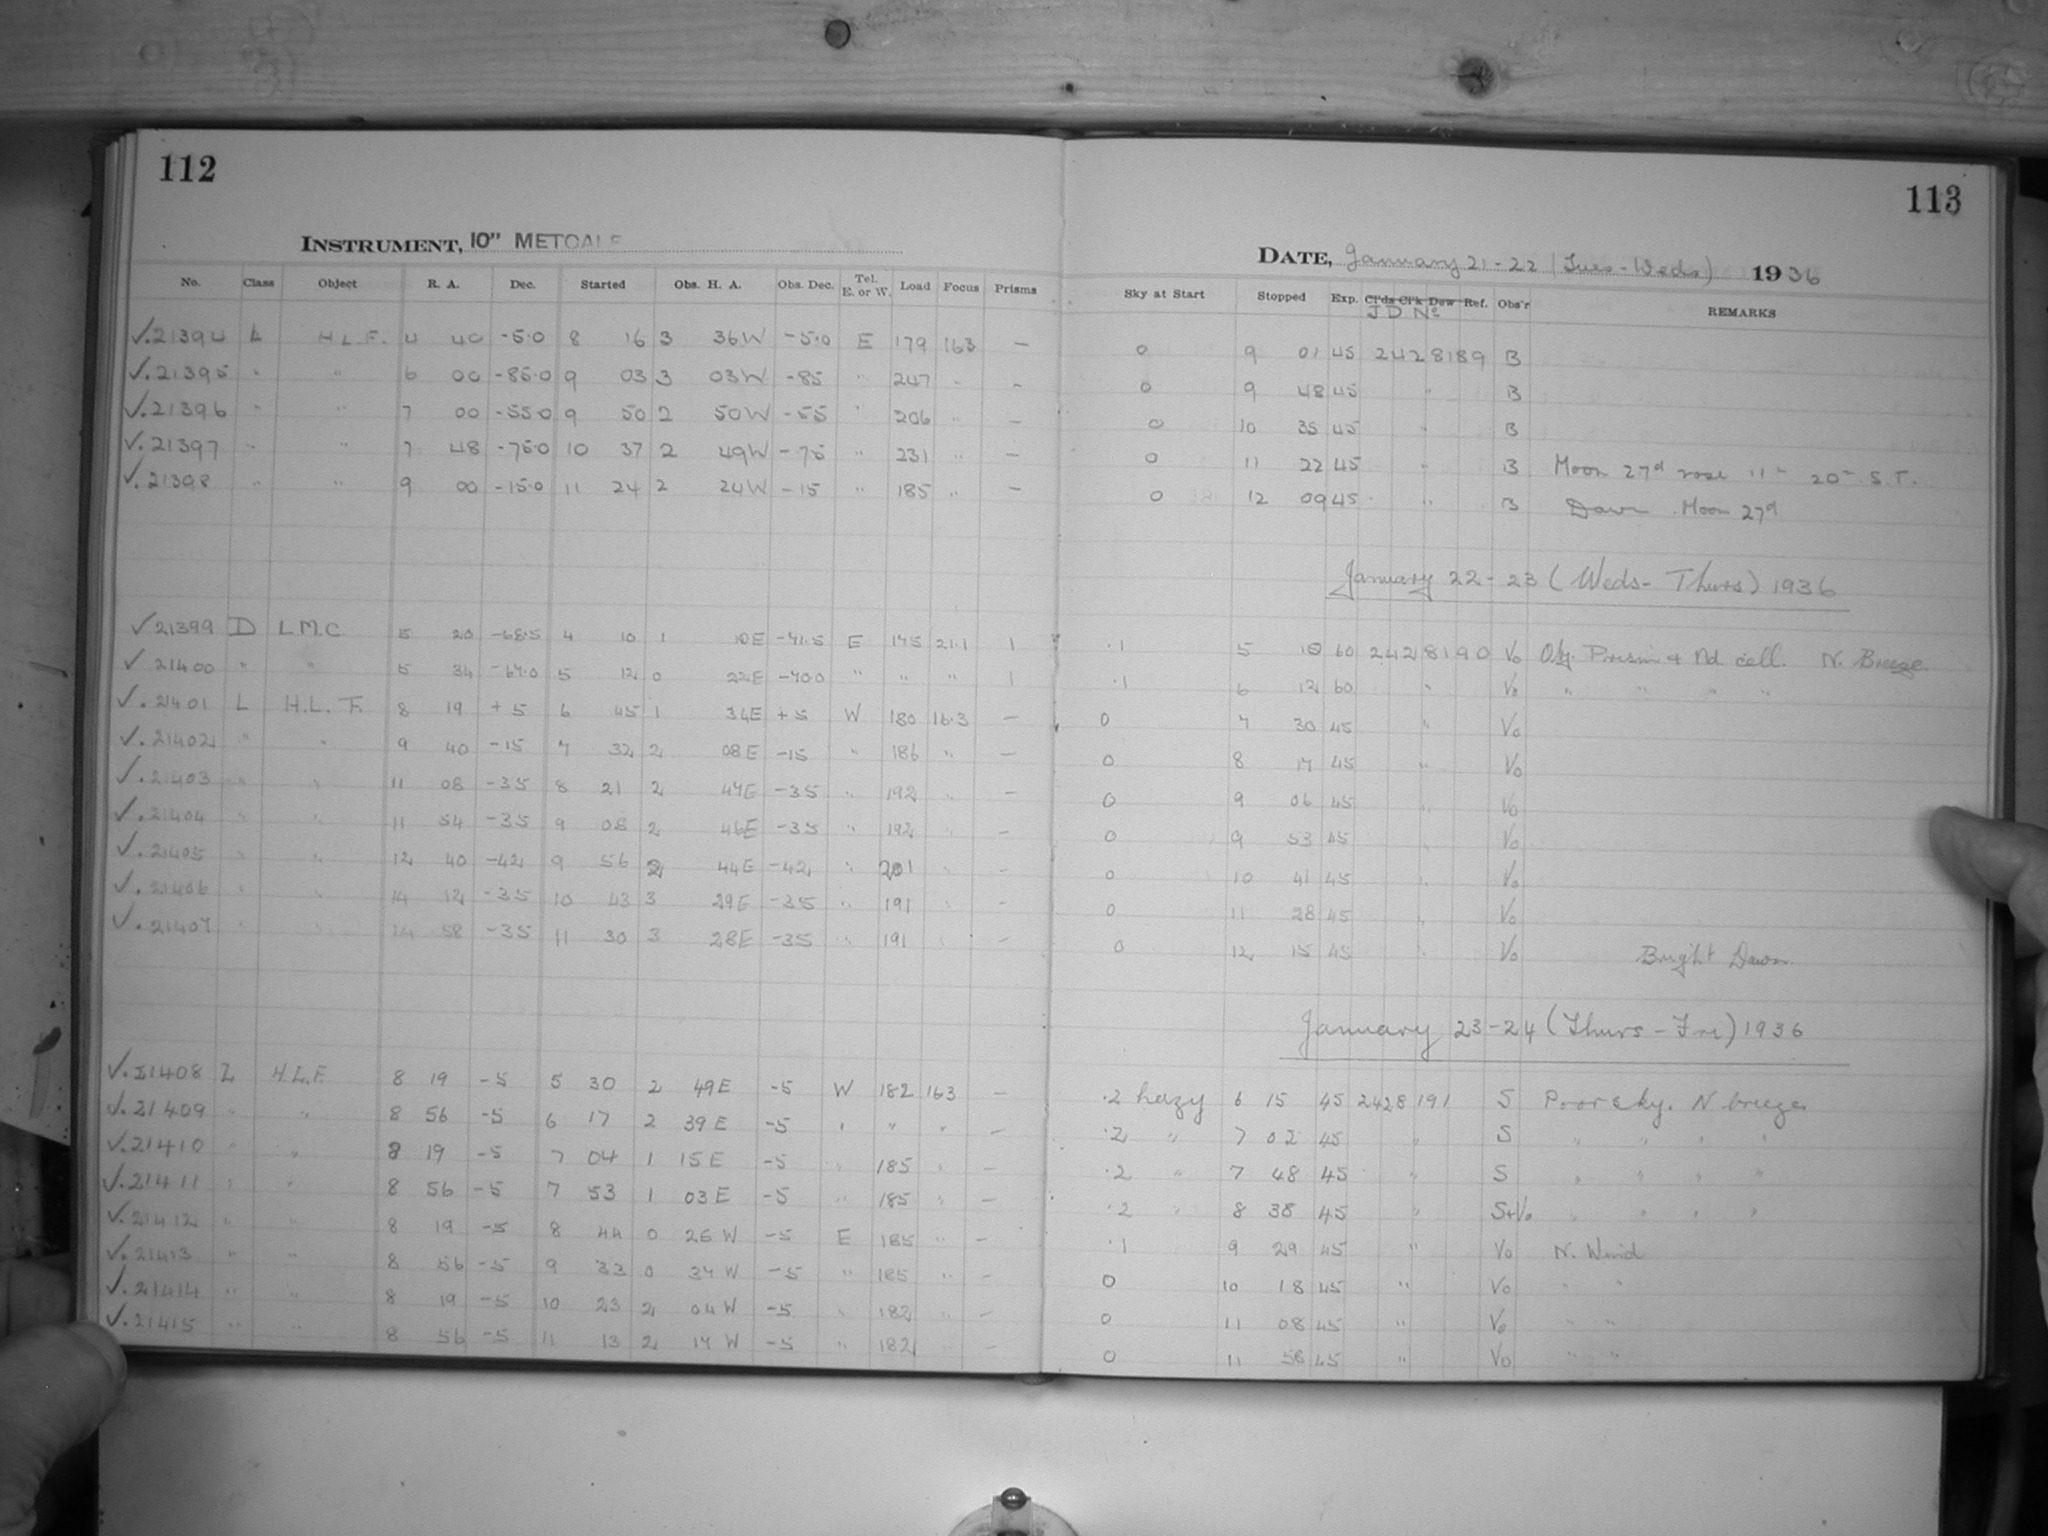 112
113
INSTRUMENT, 10" METCALF
DATE, January 21-22 (Tues-Weds) 1936
No. Class Object R. A. Dec. Started Obs. H. A. Obs. Dec. Tel. E. or W. Load Focus Prisms Sky at Start Stopped Exp. Cl'ds Cl'k Dew Ref. Obs'r REMARKS
J D No
✓.21394 L H.L.F. 4 40 -5.0 8 16 3 36W -5.0 E 179 163 — 0 9 01 45 2428189 B
✓.21395 " " 6 00 -85.0 9 03 3 03W -85 " 247 " — 0 9 48 45 " B
✓.21396 " " 7 00 -55.0 9 50 2 50W -55 " 206 " — 0 10 35 45 " B
✓.21397 " " 7 48 -75.0 10 37 2 49W -75 " 231 " — 0 11 22 45 " B Moon 27d rose 11h 20m S.T.
✓.21398 " " 9 00 -15.0 11 24 2 24W -15 " 185 " — 0 12 09 45 " B Dawn Moon 27d
January 22-23 (Weds-Thurs) 1936
✓ 21399 D L.M.C. 5 20 -68.5 4 10 1 10E -71.5 E 175 21.1 1 .1 5 10 60 2428190 Vo Obj. Prism & Nd cell. N. Breeze
✓ 21400 " " 5 34 -67.0 5 12 0 22E -70.0 " " " 1 .1 6 12 60 " Vo " " " "
✓.21401 L H.L.F. 8 19 +5 6 45 1 34E +5 W 180 16.3 — 0 7 30 45 " Vo
✓.21402 " " 9 40 -15 7 32 2 08E -15 " 186 " — 0 8 17 45 " Vo
✓.21403 " " 11 08 -35 8 21 2 47E -35 " 192 " — 0 9 06 45 " Vo
✓.21404 " " 11 54 -35 9 08 2 46E -35 " 192 " — 0 9 53 45 " Vo
✓.21405 " " 12 40 -42 9 56 2 44E -42 " 201 " — 0 10 41 45 " Vo
✓.21406 " " 14 12 -35 10 43 3 29E -35 " 191 " — 0 11 28 45 " Vo
✓.21407 " " 14 58 -35 11 30 3 28E -35 " 191 " — 0 12 15 45 " Vo Bright Dawn.
January 23-24 (Thurs-Fri) 1936
✓.21408 L H.L.F. 8 19 -5 5 30 2 49E -5 W 182 163 — .2 hazy 6 15 45 2428191 S Poor sky. N breeze
✓.21409 " " 8 56 -5 6 17 2 39E -5 " " " — .2 " 7 02 45 " S " " " "
✓.21410 " " 8 19 -5 7 04 1 15E -5 " 185 " — .2 " 7 48 45 " S " " " "
✓.21411 " " 8 56 -5 7 53 1 03E -5 " 185 " — .2 " 8 38 45 " S+Vo " " " "
✓.21412 " " 8 19 -5 8 44 0 26W -5 E 185 " — .1 9 29 45 " Vo N. Wind
✓.21413 " " 8 56 -5 9 33 0 37W -5 " 185 " — 0 10 18 45 " Vo " "
✓.21414 " " 8 19 -5 10 23 2 04W -5 " 182 " — 0 11 08 45 " Vo " "
✓.21415 " " 8 56 -5 11 13 2 17W -5 " 182 " — 0 11 58 45 " Vo " "